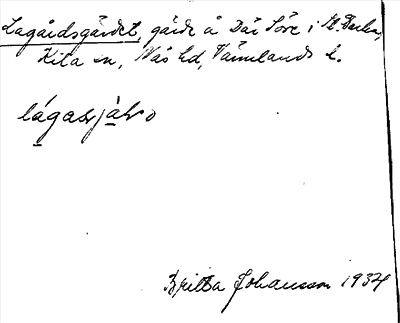 Lagårdsgärdet, gärde å Där Söre i St. Backa,
Kila sn, Näs hd, Värmlands l.
lágasjáɬɔ
Britta Johansson 1934